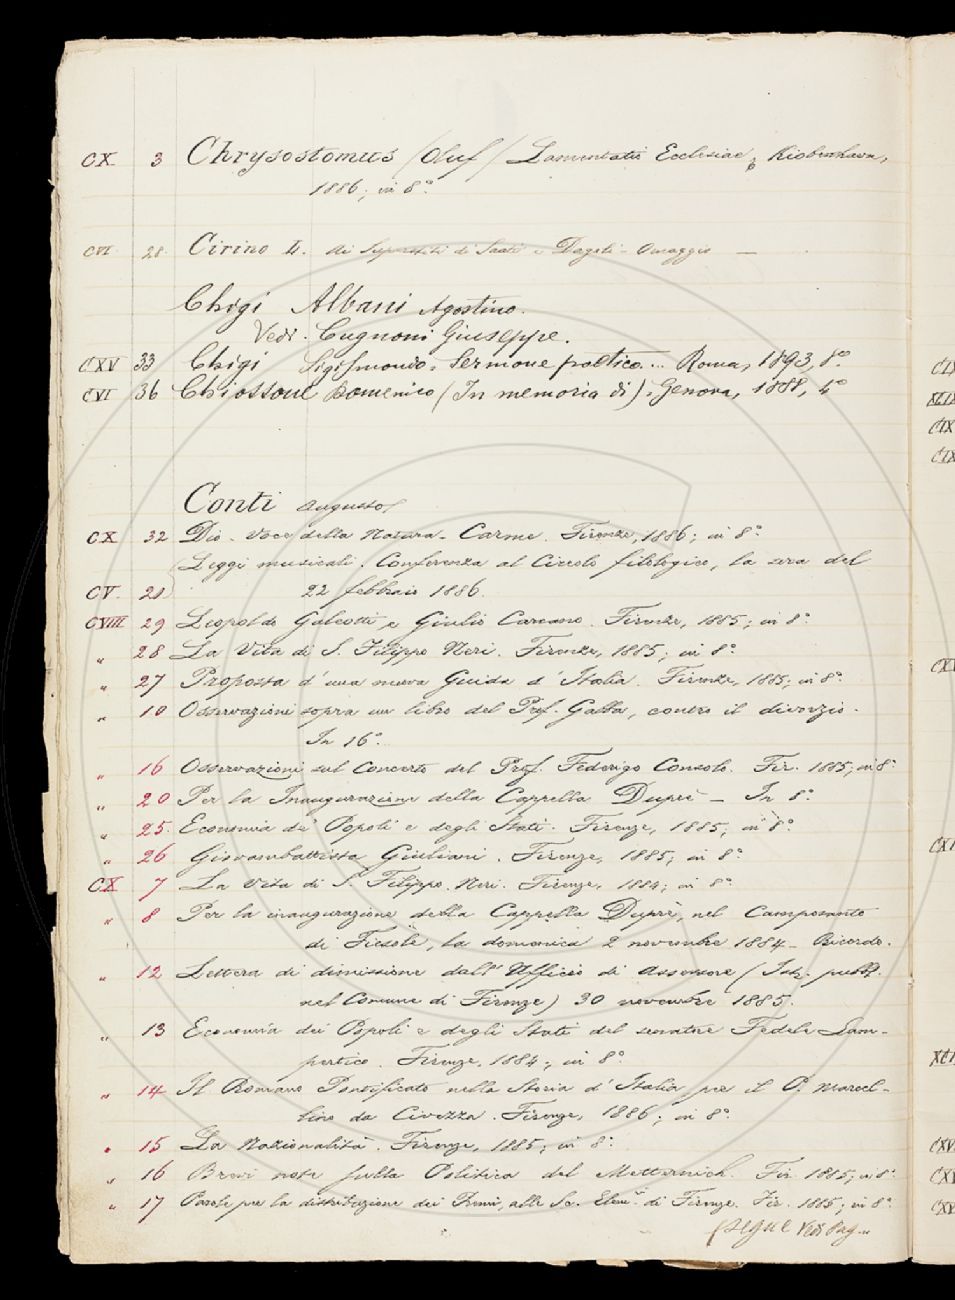 CX 3 Chrysostomus (Oluf) Lamentatio Ecclesiae, Kiobenhavn,
1886; in 8°
CVI 28 Cirino L. Ai Superstiti di Saati e Dogali - Omaggio —
Chigi Albani Agostino.
Vedi. Cugnoni Giuseppe.
CXV 33 Chigi Sigismondo. Sermone poetico... Roma, 1893, 8°
CVI 36 Chiossone Domenico (In memoria di). Genova, 1888, 4°
Conti Augusto
CX 32 Dio. Voce della Natura. Carme. Firenze, 1886; in 8°
Leggi musicali. Conferenza al Circolo filologico, la sera del
CV 21 22 febbraio 1886.
CVIII 29 Leopoldo Galeotti e Giulio Carcano. Firenze, 1885; in 8°
" 28 La Vita di S. Filippo Neri. Firenze, 1885; in 8°
" 27 Proposta d'una nuova Guida d'Italia. Firenze, 1885; in 8°
" 10 Osservazioni sopra un libro del Prof. Gabba, contro il divorzio.
In 16°
" 16 Osservazioni sul Concerto del Prof. Federigo Consolo. Fir. 1885; in 8°
" 20 Per la Inaugurazione della Cappella Duprè — In 8°
" 25. Economia de' Popoli e degli Stati. Firenze, 1885; in 8°
" 26 Giovambattista Giuliani. Firenze, 1885; in 8°
CX 7 La Vita di S. Filippo Neri. Firenze, 1884; in 8°
" 8 Per la inaugurazione della Cappella Duprè, nel Camposanto
di Fiesole, la domenica 2 novembre 1884 - Ricordo.
" 12 Lettera di dimissione dall'Ufficio di Assessore (Istr. pubbl.
nel Comune di Firenze) 30 novembre 1885.
" 13 Economia dei Popoli e degli Stati del senatore Fedele Lam-
pertico. Firenze, 1884; in 8°
" 14 Il Romano Pontificato nella Storia d'Italia per il P. Marcel-
lino da Civezza. Firenze, 1886; in 8°
" 15 La Nazionalità. Firenze, 1885; in 8°
" 16 Brevi note sulla Politica del Metternich. Fir. 1885; in 8°
" 17 Parole per la distribuzione dei Premi, alle Sc. Elem. di Firenze. Fir. 1885; in 8°
segue Vedi Pag.